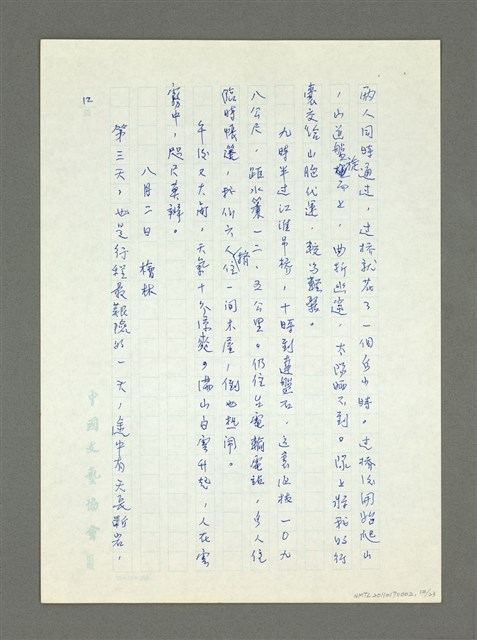 兩人同時通過，過橋就花了一個多小時。過橋後開始爬山
，山道盤旋而上，曲折幽邃，太陽晒不到。隊上將我的行
囊交給山胞代運，較為輕鬆。
九時半過江淮吊橋，十時到達盤石，這裏海拔一〇九
八公尺，距水簾一二．五公里。仍住台電輸電站，多人住
臨時帳蓬，我們六人擠住一間木屋，倒也熱鬧。
午後又大雨，天氣十分涼爽。滿山白雲升起，人在雲
霧中，咫尺莫辨。
八月二日　檜林
第三天，也是行程最艱險的一天，途中有天長斷岩，
12
中國文藝協會
NMTL20110170002